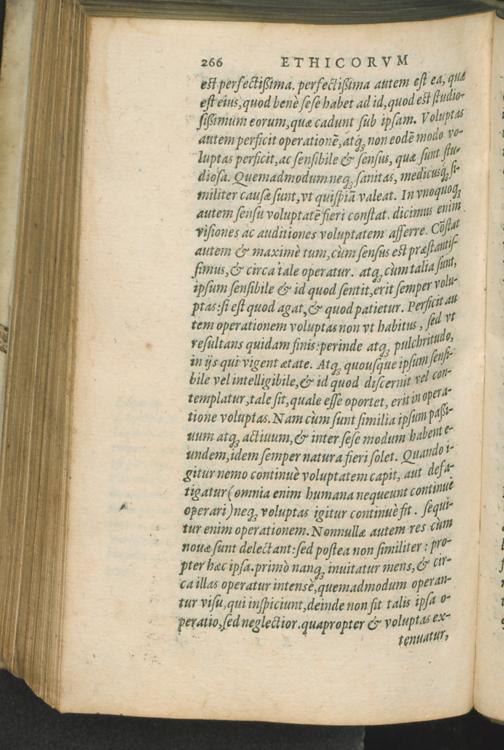 266 ETHICORVM
est perfectißima. perfectißima autem est ea, quæ
est eius, quod benè sese habet ad id, quod est studio-
sißimum eorum, quæ cadunt sub ipsam. Voluptas
autem perficit operationẽ, atq; non eodẽ modo vo-
luptas perficit, ac sensibile & sensus, quæ sunt stu-
diosa. Quemadmodum neq; sanitas, medicusq; si-
militer causæ sunt, vt quispiã valeat. In vnoquoq;
autem sensu voluptatẽ fieri constat. dicimus enim
visiones ac auditiones voluptatem afferre. Cõstat
autem & maximè tum, cùm sensus est præstantis-
simus, & circa tale operatur. atq; cùm talia sunt,
ipsum sensibile & id quod sentit, erit semper volu-
ptas: si est quod agat, & quod patietur. Perficit au
tem operationem voluptas non vt habitus, sed vt
resultans quidam finis: perinde atq; pulchritudo,
in ijs qui vigent ætate. Atq; quousque ipsum sensi-
bile vel intelligibile, & id quod discernit vel con-
templatur, tale sit, quale esse oportet, erit in opera-
tione voluptas. Nam cùm sunt similia ipsum paßi-
uum atq; actiuum, & inter sese modum habent e-
undem, idem semper natura fieri solet. Quando i-
gitur nemo continuè voluptatem capit, aut defa-
tigatur (omnia enim humana nequeunt continuè
operari) neq; voluptas igitur continuè fit. sequi-
tur enim operationem. Nonnullæ autem res cùm
nouæ sunt delectant: sed postea non similiter: pro-
pter hæc ipsa. primò nanq; inuitatur mens, & cir-
ca illas operatur intensè, quemadmodum operan-
tur visu, qui inspiciunt, deinde non fit talis ipsa o-
peratio, sed neglectior. quapropter & voluptas ex-
tenuatur,